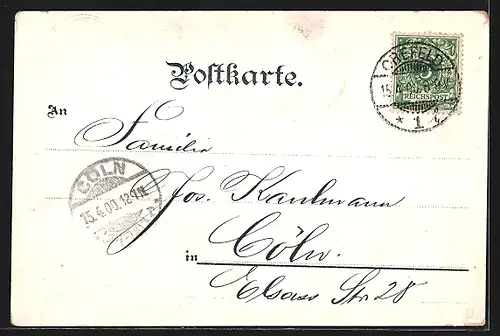 Postkarte.
CREFELD
15.4.00
REICHSPOST
* 1 f
An
Familie
CÖLN
15.4.00.12-1N
Jos. Kaufmann
in Cöln.
Elsass Str 28